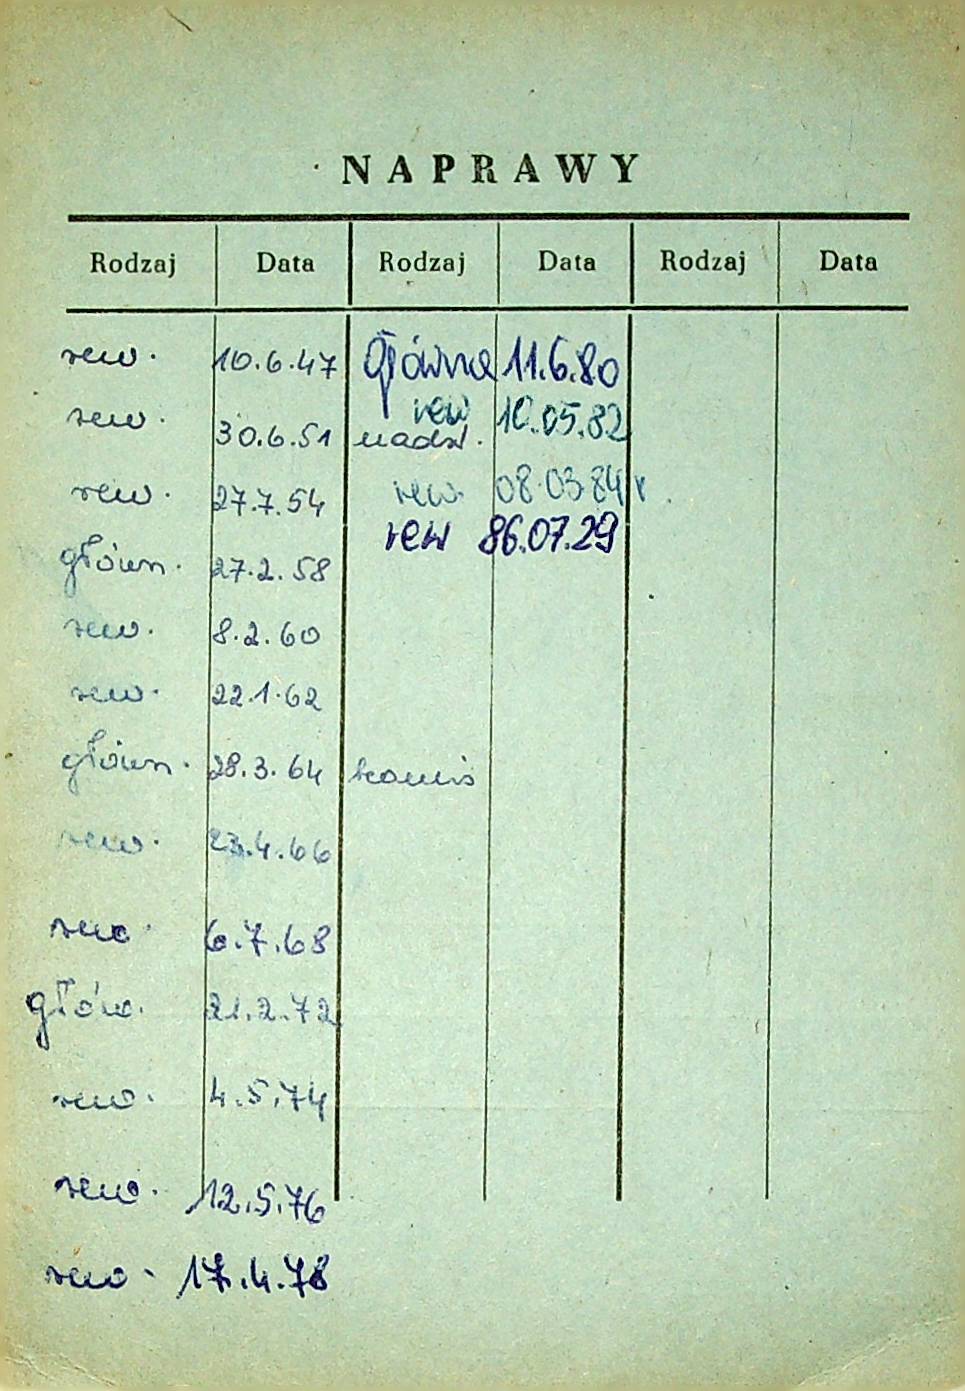 NAPRAWY
Rodzaj Data Rodzaj Data Rodzaj Data
rew. 10.6.47 Główna 11.6.80
rew 10.05.82
rew. 30.6.51 nadzw.
rew. 27.7.54 rew. 08.03.84r.
rew 86.07.29
główn. 27.2.58
rew. 8.2.60
rew. 22.1.62
główn. 28.3.64
rew. 23.4.66
rew. 6.7.68
głów. 21.2.72
rew. 4.5.74
rew. 12.5.76
rew. 17.4.78